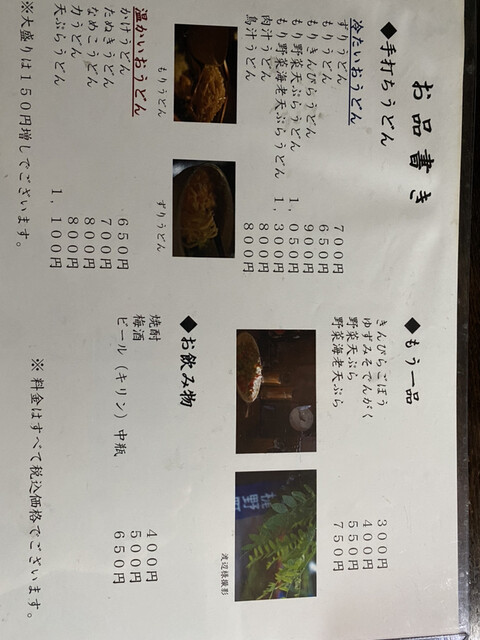 お品書き
◆手打ちうどん
冷たいおうどん
ずりうどん 700円
もりうどん 650円
もりきんぴらうどん 900円
もり野菜天ぷらうどん 1,050円
もり野菜海老天ぷらうどん 1,300円
肉汁うどん 800円
鳥汁うどん 800円
もりうどん
ずりうどん
温かいおうどん
かけうどん 650円
たぬきうどん 700円
なめこうどん 800円
力うどん 800円
天ぷらうどん 1,100円
※大盛りは150円増しでございます。
◆もう一品
きんぴらごぼう 300円
ゆずみそでんがく 400円
野菜天ぷら 550円
野菜海老天ぷら 750円
渡辺様撮影
◆お飲み物
焼酎 400円
梅酒 500円
ビール(キリン)中瓶 650円
※料金はすべて税込価格でございます。